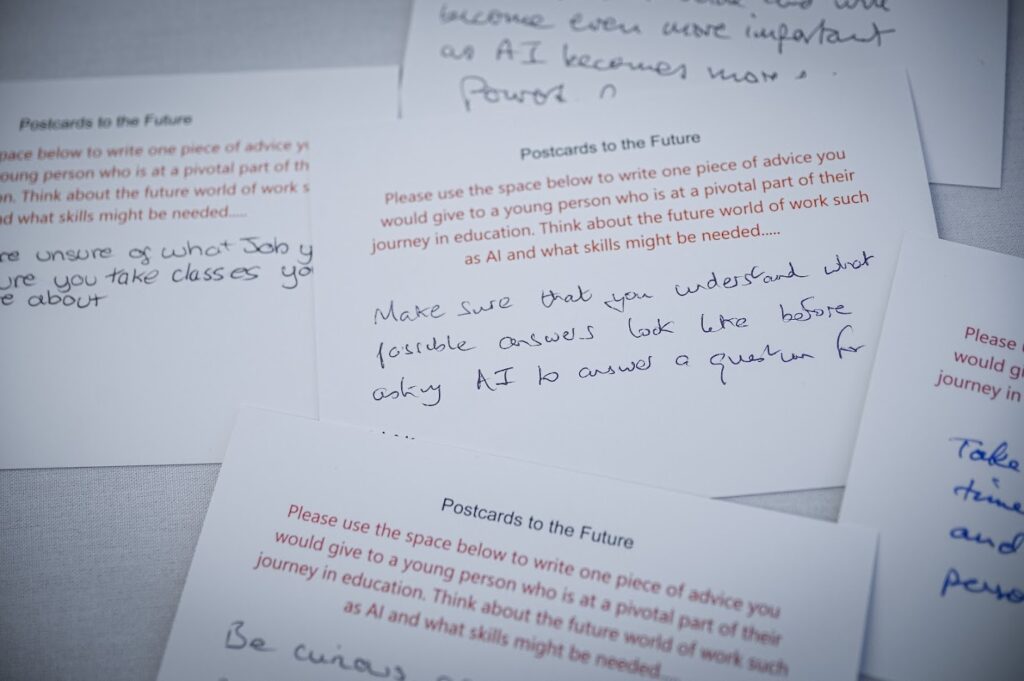 become even more important
as AI becomes more
Postcards to the Future
pace below to write one piece of advice y
oung person who is at a pivotal part of th
n. Think about the future world of work s
d what skills might be needed.....
re unsure of what Job y
ure you take classes yo
e about
Postcards to the Future
Please use the space below to write one piece of advice you
would give to a young person who is at a pivotal part of their
journey in education. Think about the future world of work such
as AI and what skills might be needed.....
Make sure that you understand what
possible answers look like before
asking AI to answer a question for
Please
would gi
journey in
Take
time
and
perso
Postcards to the Future
Please use the space below to write one piece of advice you
would give to a young person who is at a pivotal part of their
journey in education. Think about the future world of work such
as AI and what skills might be needed.....
Be curious